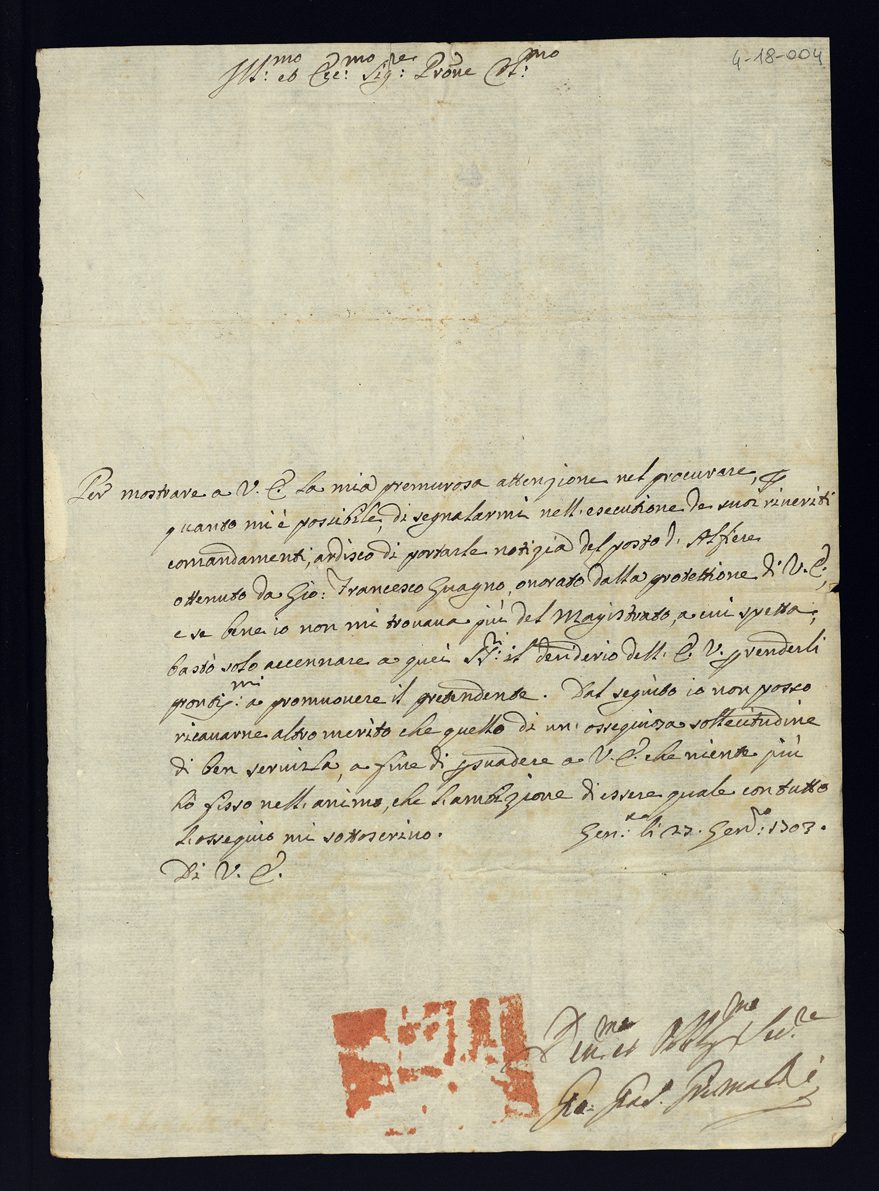 4-18-004
Ill:mo et Ecc:mo Sig:re Prone Col:mo
Per mostrare a V. E. la mia premurosa attenzione nel procurare, p
quanto mi è possibile, di segnalarmi nell'esecutione de suoi riveriti
comandamenti, ardisco di portarle notizia del posto d'Alfiere
ottenuto da Gio: Francesco Guagno, onorato dalla protettione di V. E.,
e se bene io non mi trovava più del Magistrato, a cui spetta,
bastò solo accennare a quei SS:ri il desiderio dell'E. V. p renderli
prontiss:mi a promuovere il pretendente. Dal seguito io non posso
ricavarne altro merito che quello di un'ossequiosa sollecitudine
di ben servirla, a fine di psuadere a V. E. che niente più
hò fisso nell'animo, che l'ambizione di essere quale con tutto
l'ossequio mi sottoscrivo. Gen:a li 27. Gen:ro 1703.
Di V. E.
D:mo et Obblig:mo Ser:re
Gio: Grimaldi